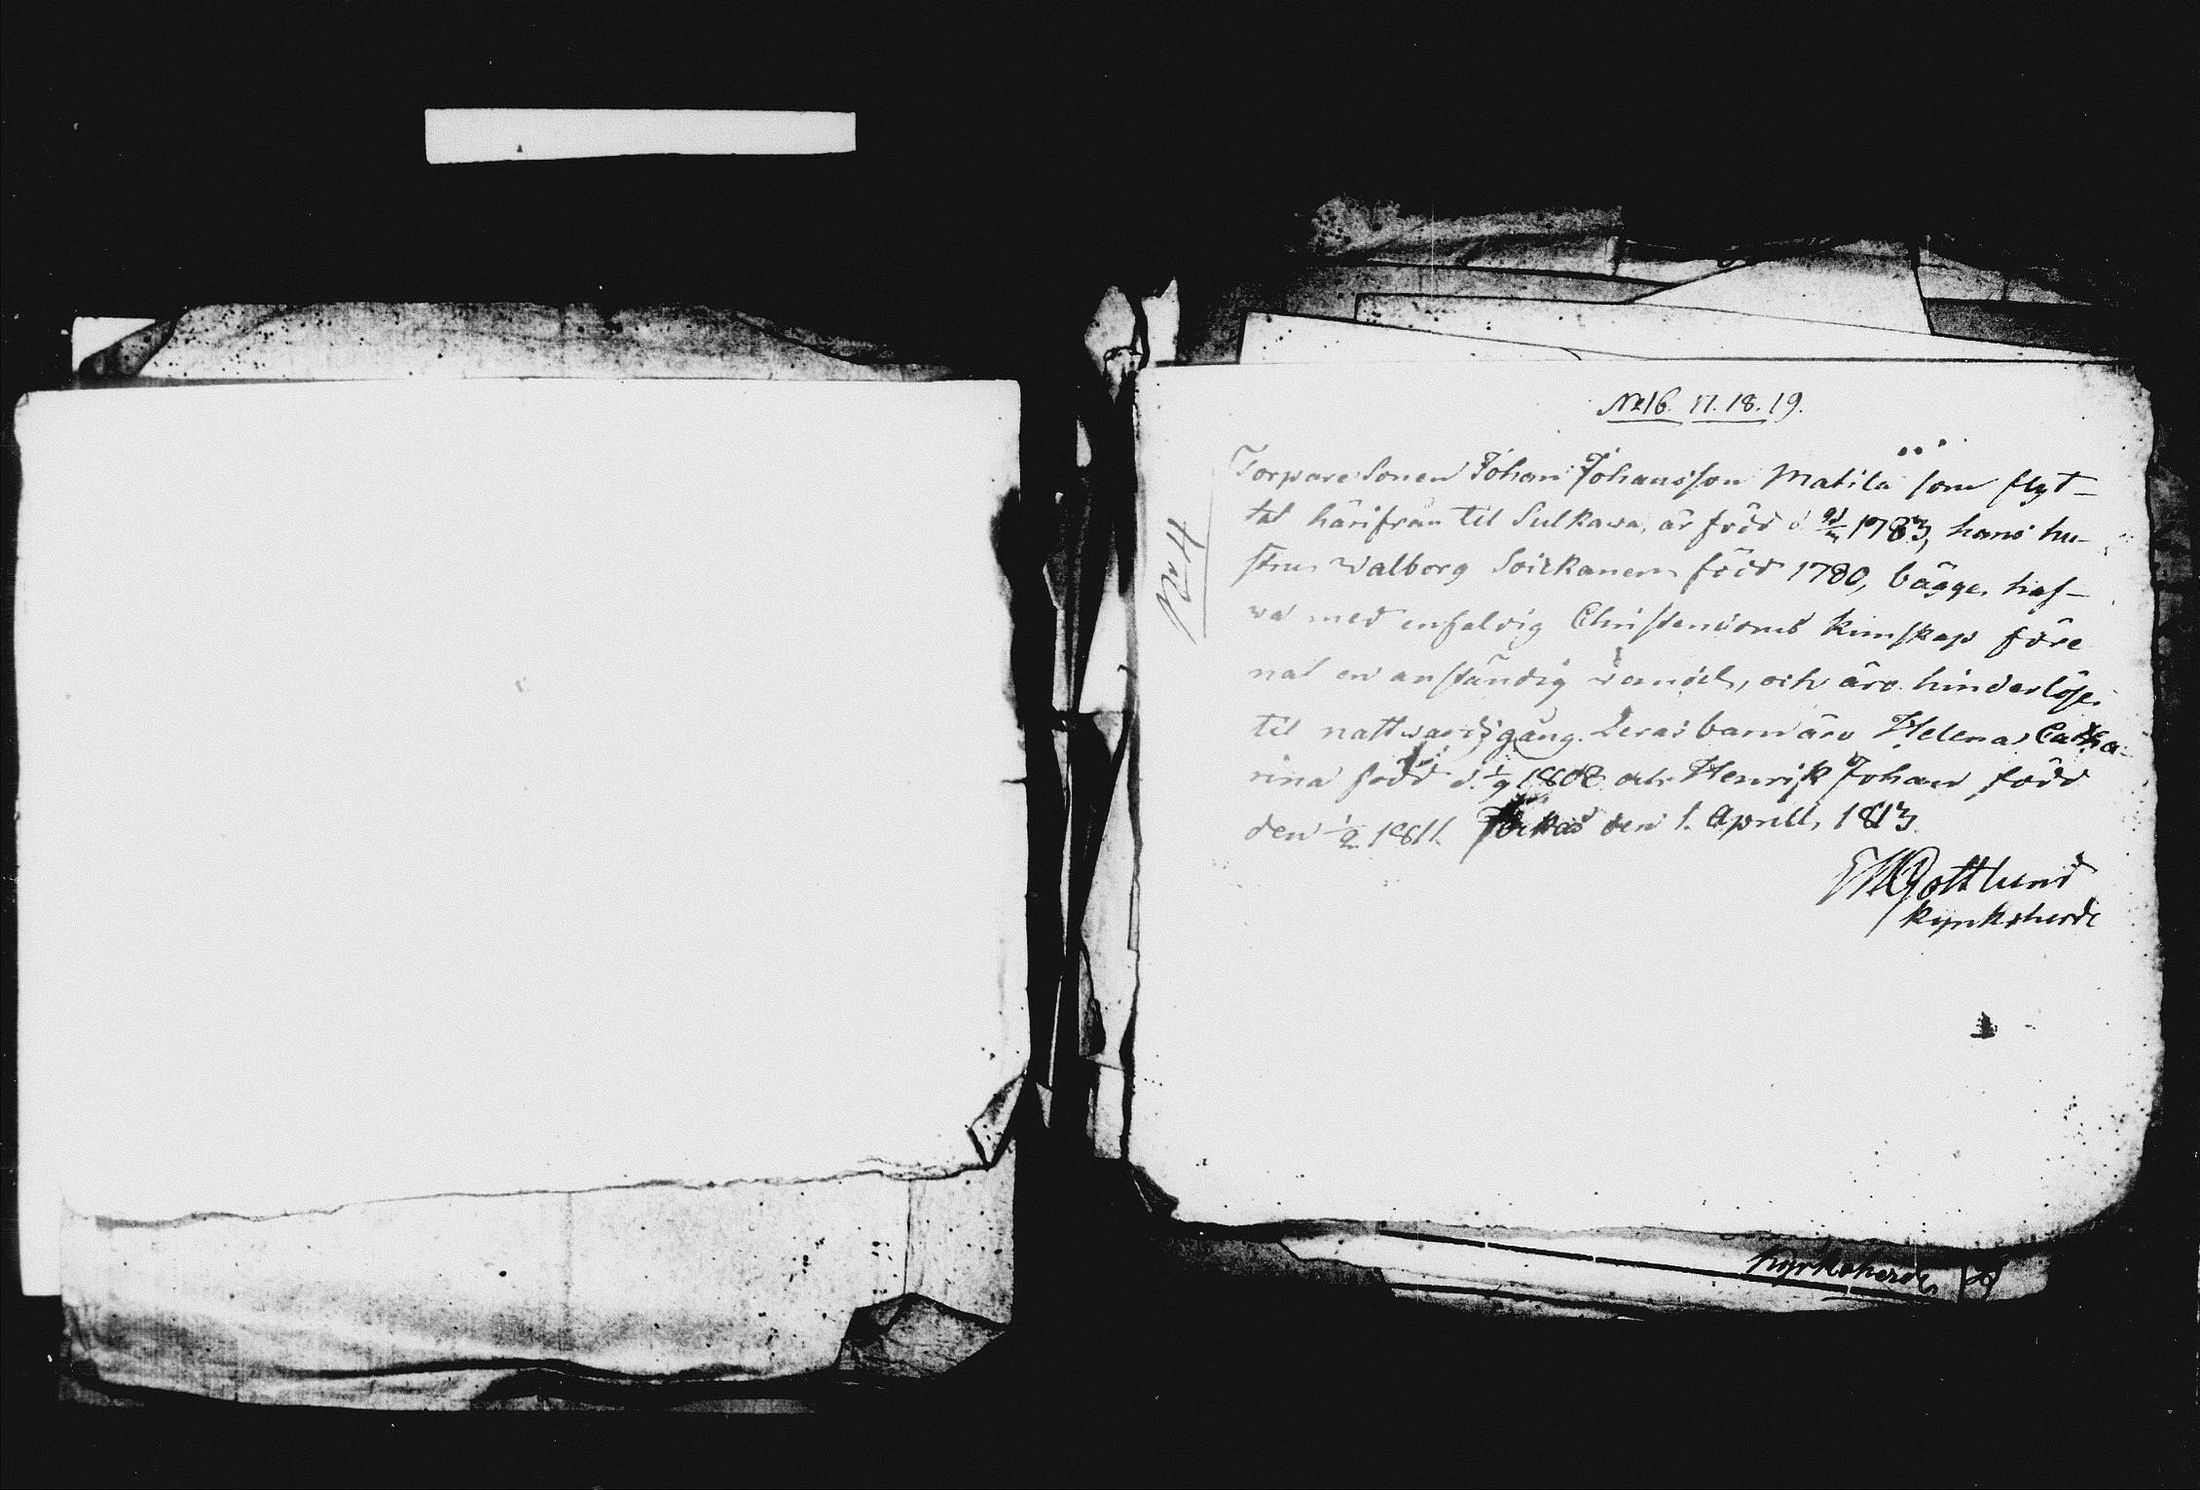 No 16. 17. 18. 19.
No 4
Torpare Sonen Johan Johansson Matila som flyt-
tat härifrån til Sulkava, är född d. 1783, hans hu-
stru Walborg Soickanen född 1780, bägge haf-
va med enfaldig Christendoms kunskap före
nat en anständig vandel, och äro hinderlöse
til nattvardsgång. Deras barn äro Helena Catha-
rina född d. 1/9 1808 och Henrik Johan född
den 1/2 1811. Jockas den 1. April, 1813.
Gottlund
Kyrkoherde
Kyrkoherde